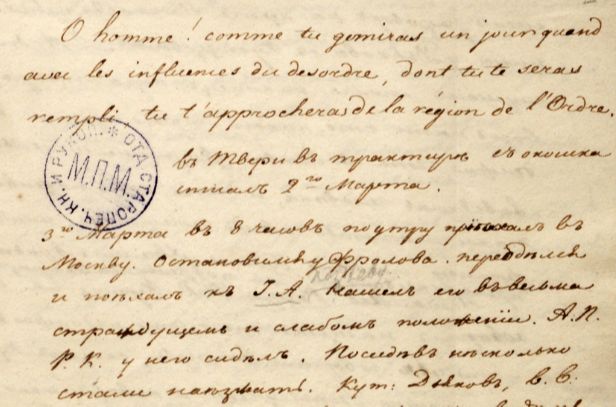 O homme! comme tu gemiras un jour quand
avec les influences du desordre, dont tu te seras
rempli tu t'approcheras de la région de l'Ordre.
ОТД. СТАРОПЕЧ. КН. И РУКОП.
М.П.М.
въ Твери въ трактирѣ съ окошка
списалъ 2го Марта.
3го Марта въ 8 часовъ поутру приѣхалъ въ
Москву. Остановился у Фролова. переодѣлся
и поѣхалъ къ I.А. Нашелъ его въ весьма
страждущемъ и слабомъ положенiи. А.П.
Р.К. у него сидѣлъ. Посидѣвъ нѣсколько
стали Кут: Дьяковъ, В.С.